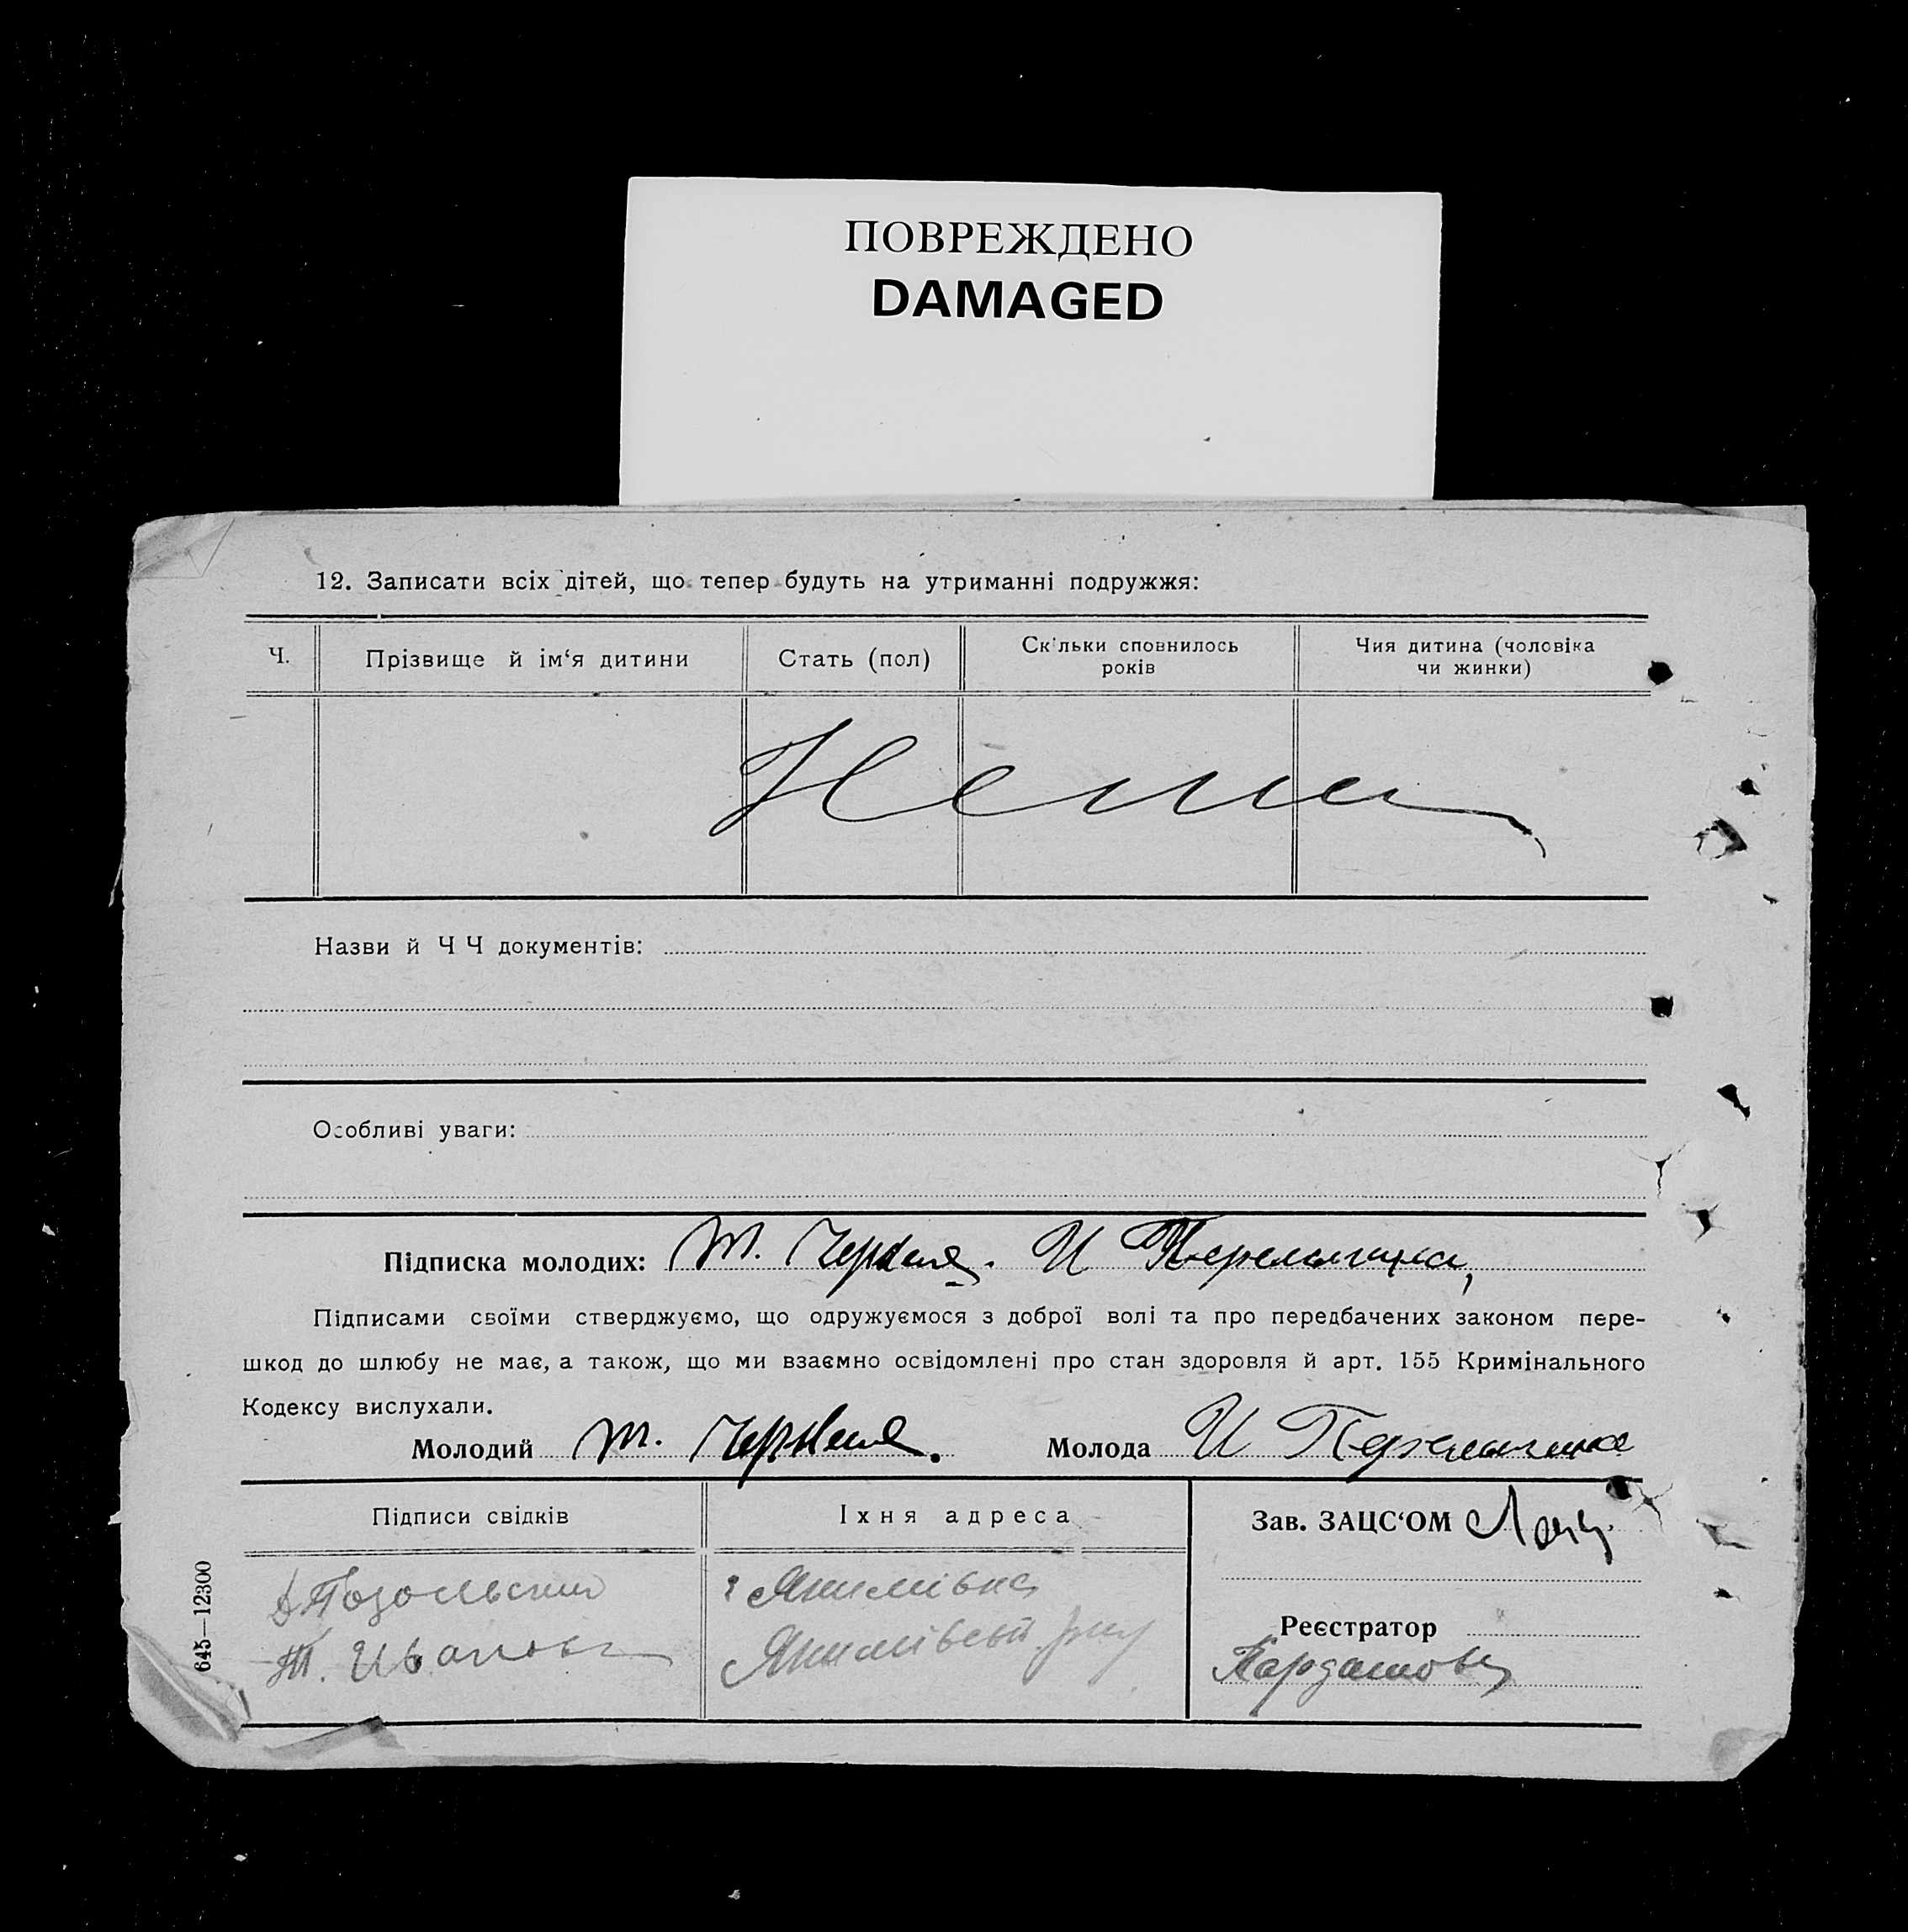 ПОВРЕЖДЕНО
DAMAGED
12. Записати всіх дітей, що тепер будуть на утриманні подружжя:
Ч.
Прізвище й ім‘я дитини
Стать (пол)
Скільки сповнилось
років
Чия дитина (чоловіка
чи жинки)
Нема
Назви й Ч Ч документів:
Особливі уваги:
Підписка молодих: И
Підписами своїми стверджуємо, що одружуємося з доброї волі та про передбачених законом пере-
шкод до шлюбу не має, а також, що ми взаємно освідомлені про стан здоровля й арт. 155 Кримінального
Кодексу вислухали.
Молодий
Молода И
Підписи свідків
Їхня адреса
Зав. ЗАЦС‘ОМ
Якимівка
Реєстратор
645—12300